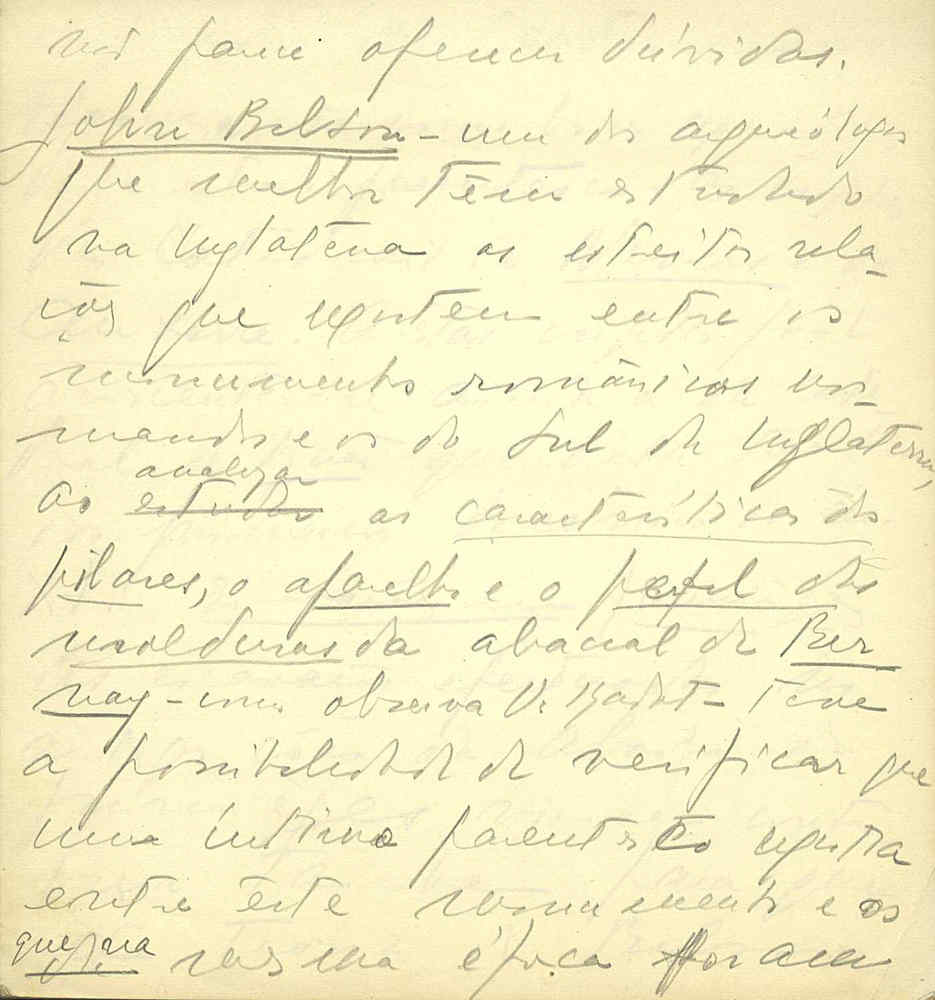 não parece oferecer dúvidas.
John Bilson - um dos arqueólogos
que melhor têm estudado
na Inglaterra as estreitas rela-
ções que existem entre os
monumentos românicos nor-
mandos e os do Sul da Inglaterra,
analizar
ao estudar as características dos
pilares, o aparelho e o perfil das
molduras da abacial de Ber
nay - como observa V. - teve
a possibilidade de verificar que
uma íntima parentesco existia
entre êste monumento e os
que, na mesma época foram